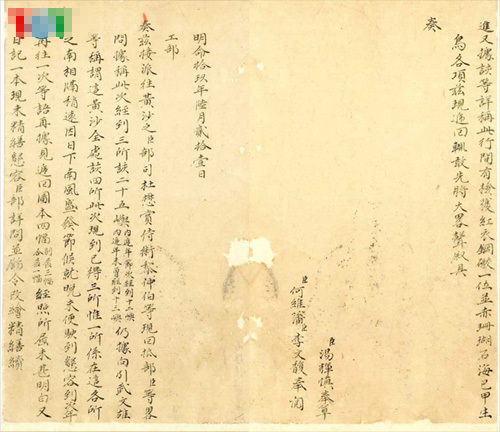 進又據該等詳稱此行間有撿獲紅衣銅礮一位並赤珊瑚石海巴甲生
鳥各項玆現遞回輒敢先將大畧聲叙具
奏
臣湯輝慎奉草
臣何維藩臣李文馥奉閱
明命拾玖年陸月貳拾壹日
工部
奏玆接派往黃沙之臣部司杜懋賞侍衛黎仲伯等現回抵部臣等畧
問據稱此次經到三所該二十五嶼內遞年節次經到十二嶼內遞年未曾經到十三嶼仍據向引武文雄
等稱謂這黃沙全處該四所此次現到已得三所惟一所係在這各所
之南相隔稍遠因日下南風盛發節候就晚未便駛到懇容到來年
再往一次等語再據見遞回圖本四幅經照所展未甚明白又
日記一本現未精繕懇容臣部詳問並飭令改繪精繕續